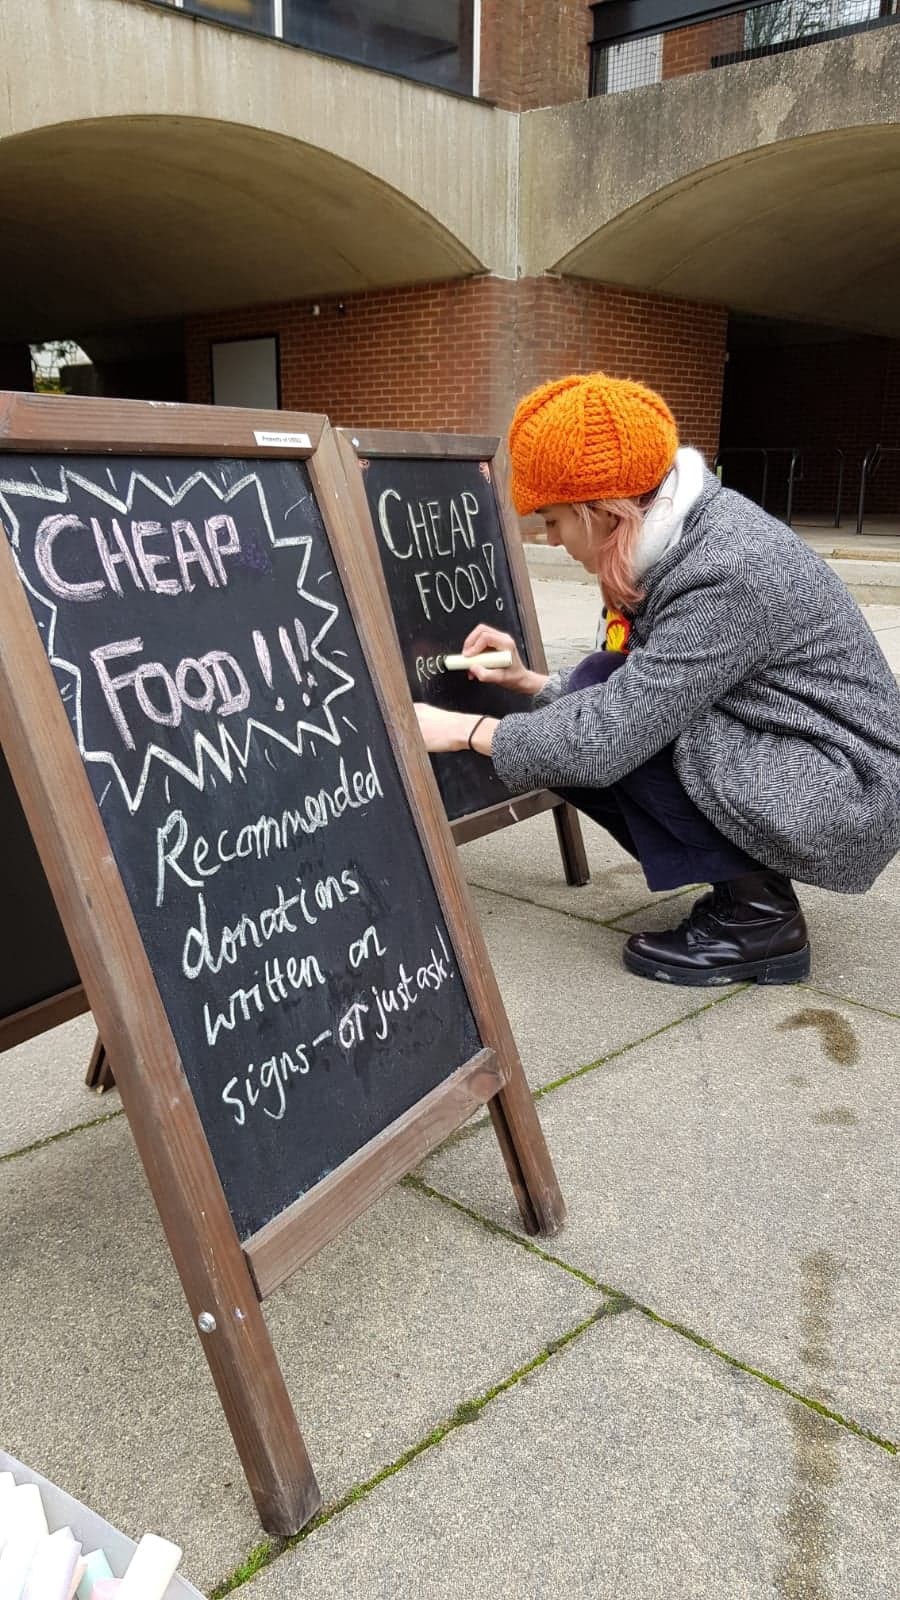 Property of USSU
CHEAP
FOOD!!!
Recommended
donations
written on
signs - or just ask!
CHEAP
FOOD!
REC